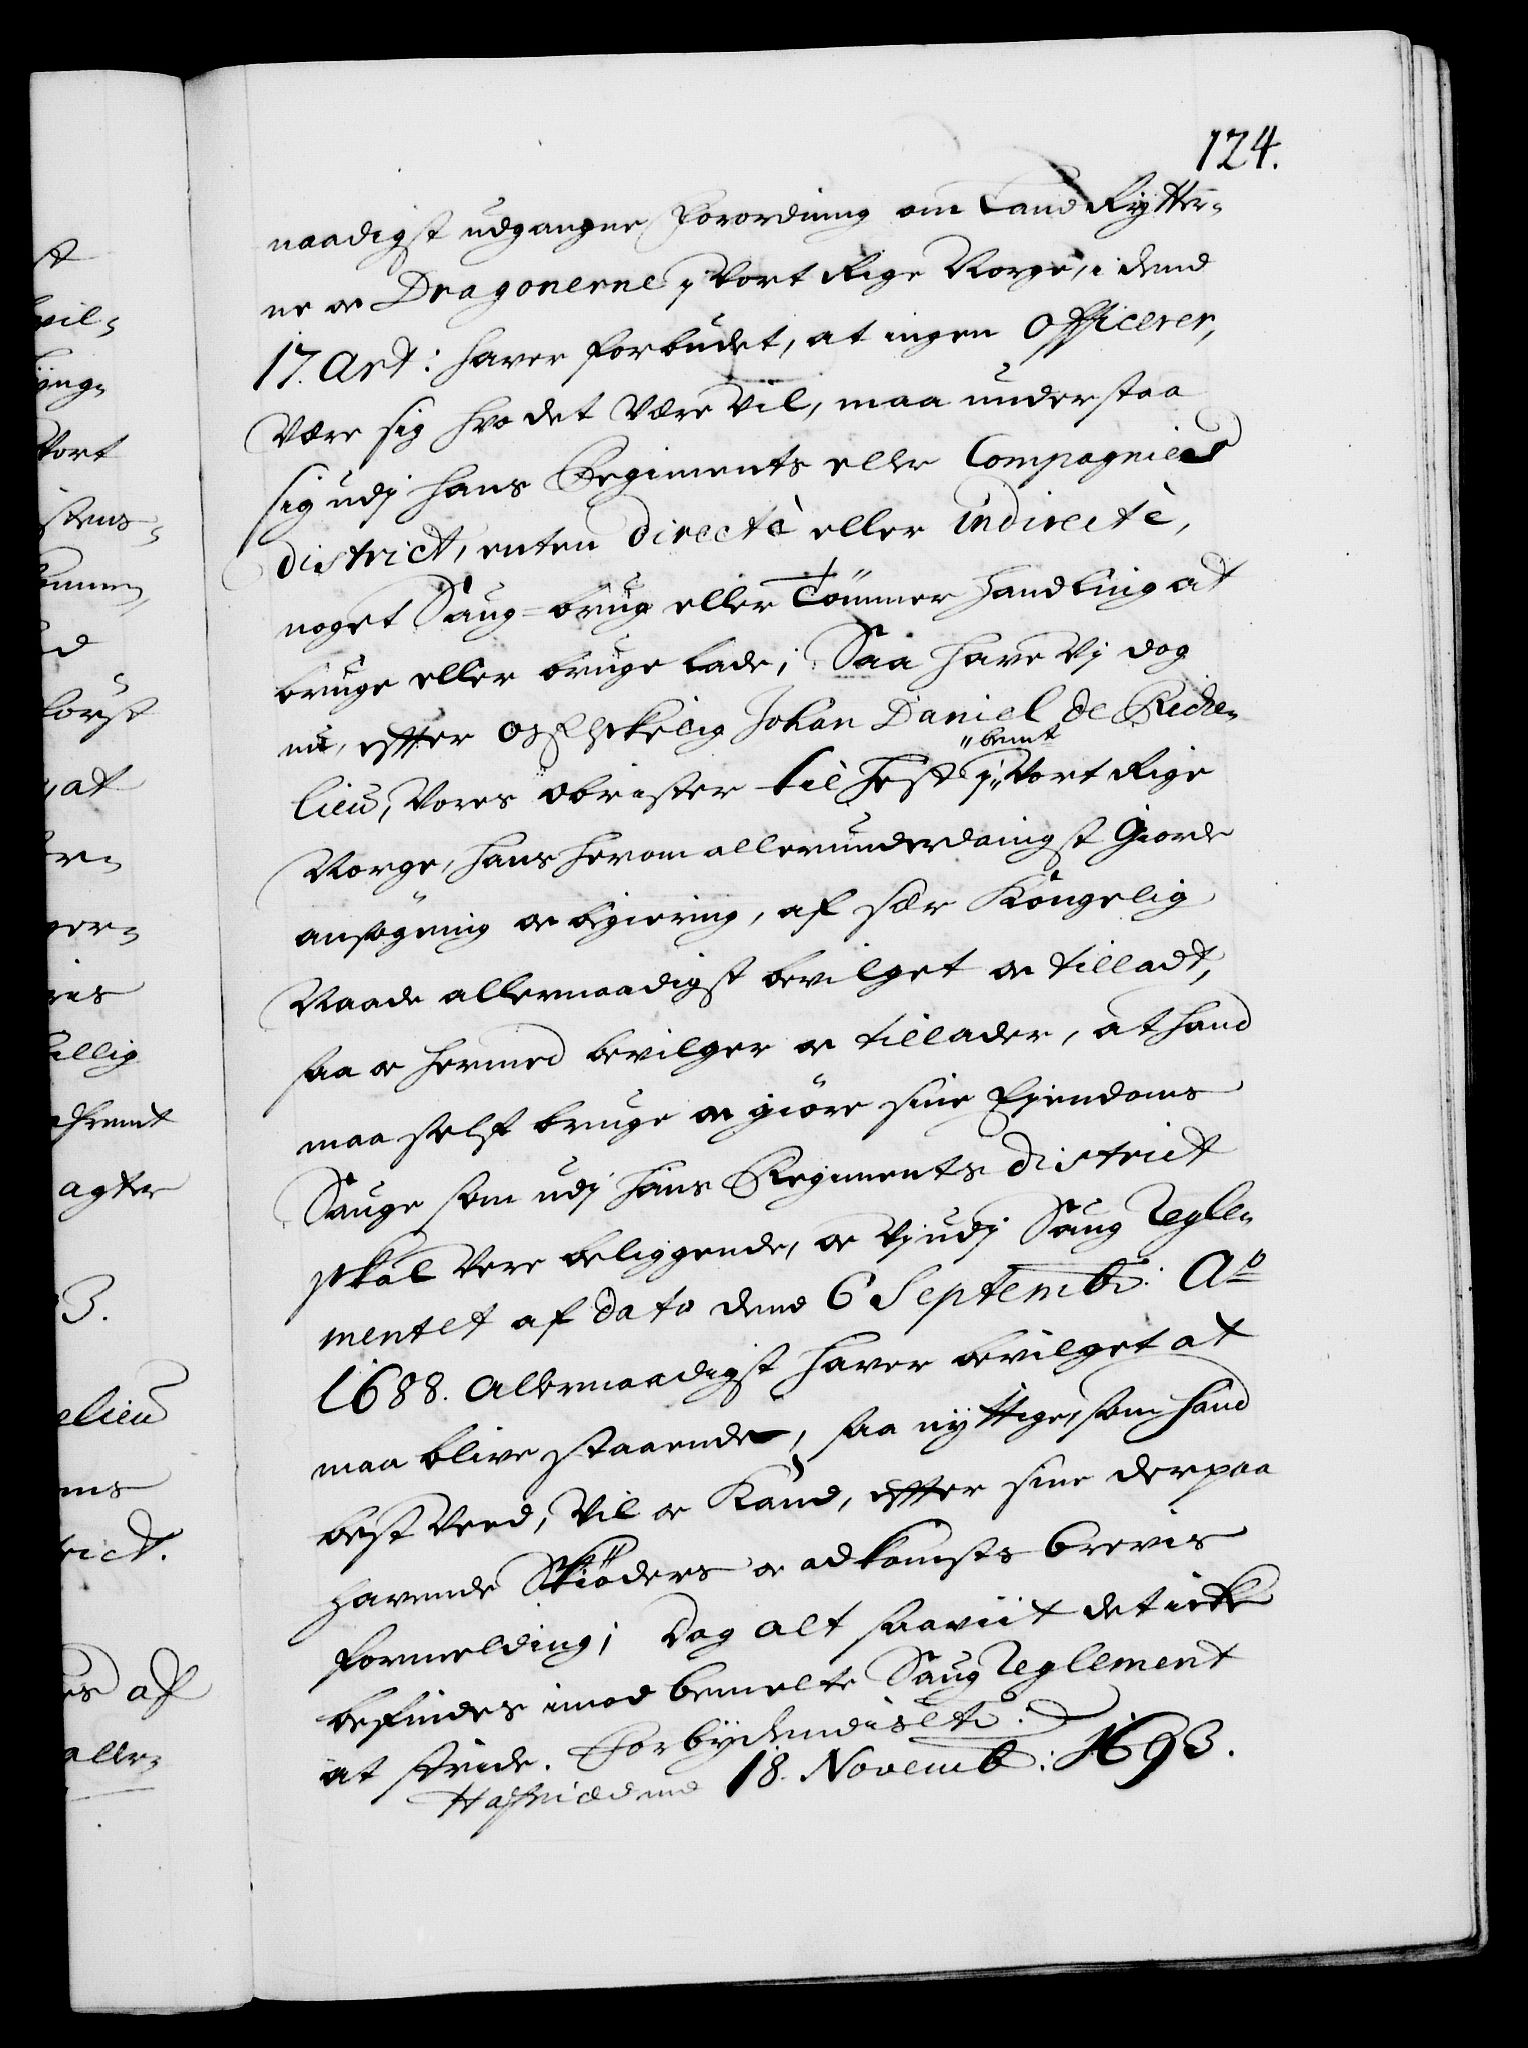 124.
naadigst udgangne Forordning om Land Rÿtter-
ne oc Dragonerne j Vort Rige Norge, i dend
17. Art: haver forbudet, at ingen Officerer,
Være sig hvo det Være Vil, maa understaa
sig udj hans Regiments eller Compagnies
district, enten directè eller indirectè,
noget Saug-brug eller Tömmer handling at
bruge eller bruge lade; Saa have Vj dog
nu, effter Os Elskelig Johan Daniel de Riche-
lieu, Vores Obrister til Hest j bemt Vort Rige
Norge, hans herom allerunderdanigst Giorde
ansögning oc begiering, af sær Kongelig
Naade allernaadigst bevilget oc tilladt,
saa oc hermed bevilger oc tillader, at hand
maa self bruge oc giöre sine Ejendoms
Sauge som udj hans Regiments district
skal Vere beliggende, oc Vj udj Saug Regle-
mentet af dato dend 6 Septembr: Ao
1688. allernaadigst haver bevilget at
maa blive staaende, saa nÿttige, som hand
best Veed, Vil oc Kand, effter sine derpaa
havende Skiöders oc adkomsts brevis
formelding; Dog alt saaviit det icke
befindes imod bemelte Saug Reglement
at stride. Forbÿdendis etc:
Hafniæ dend 18. Novemb: 1693.